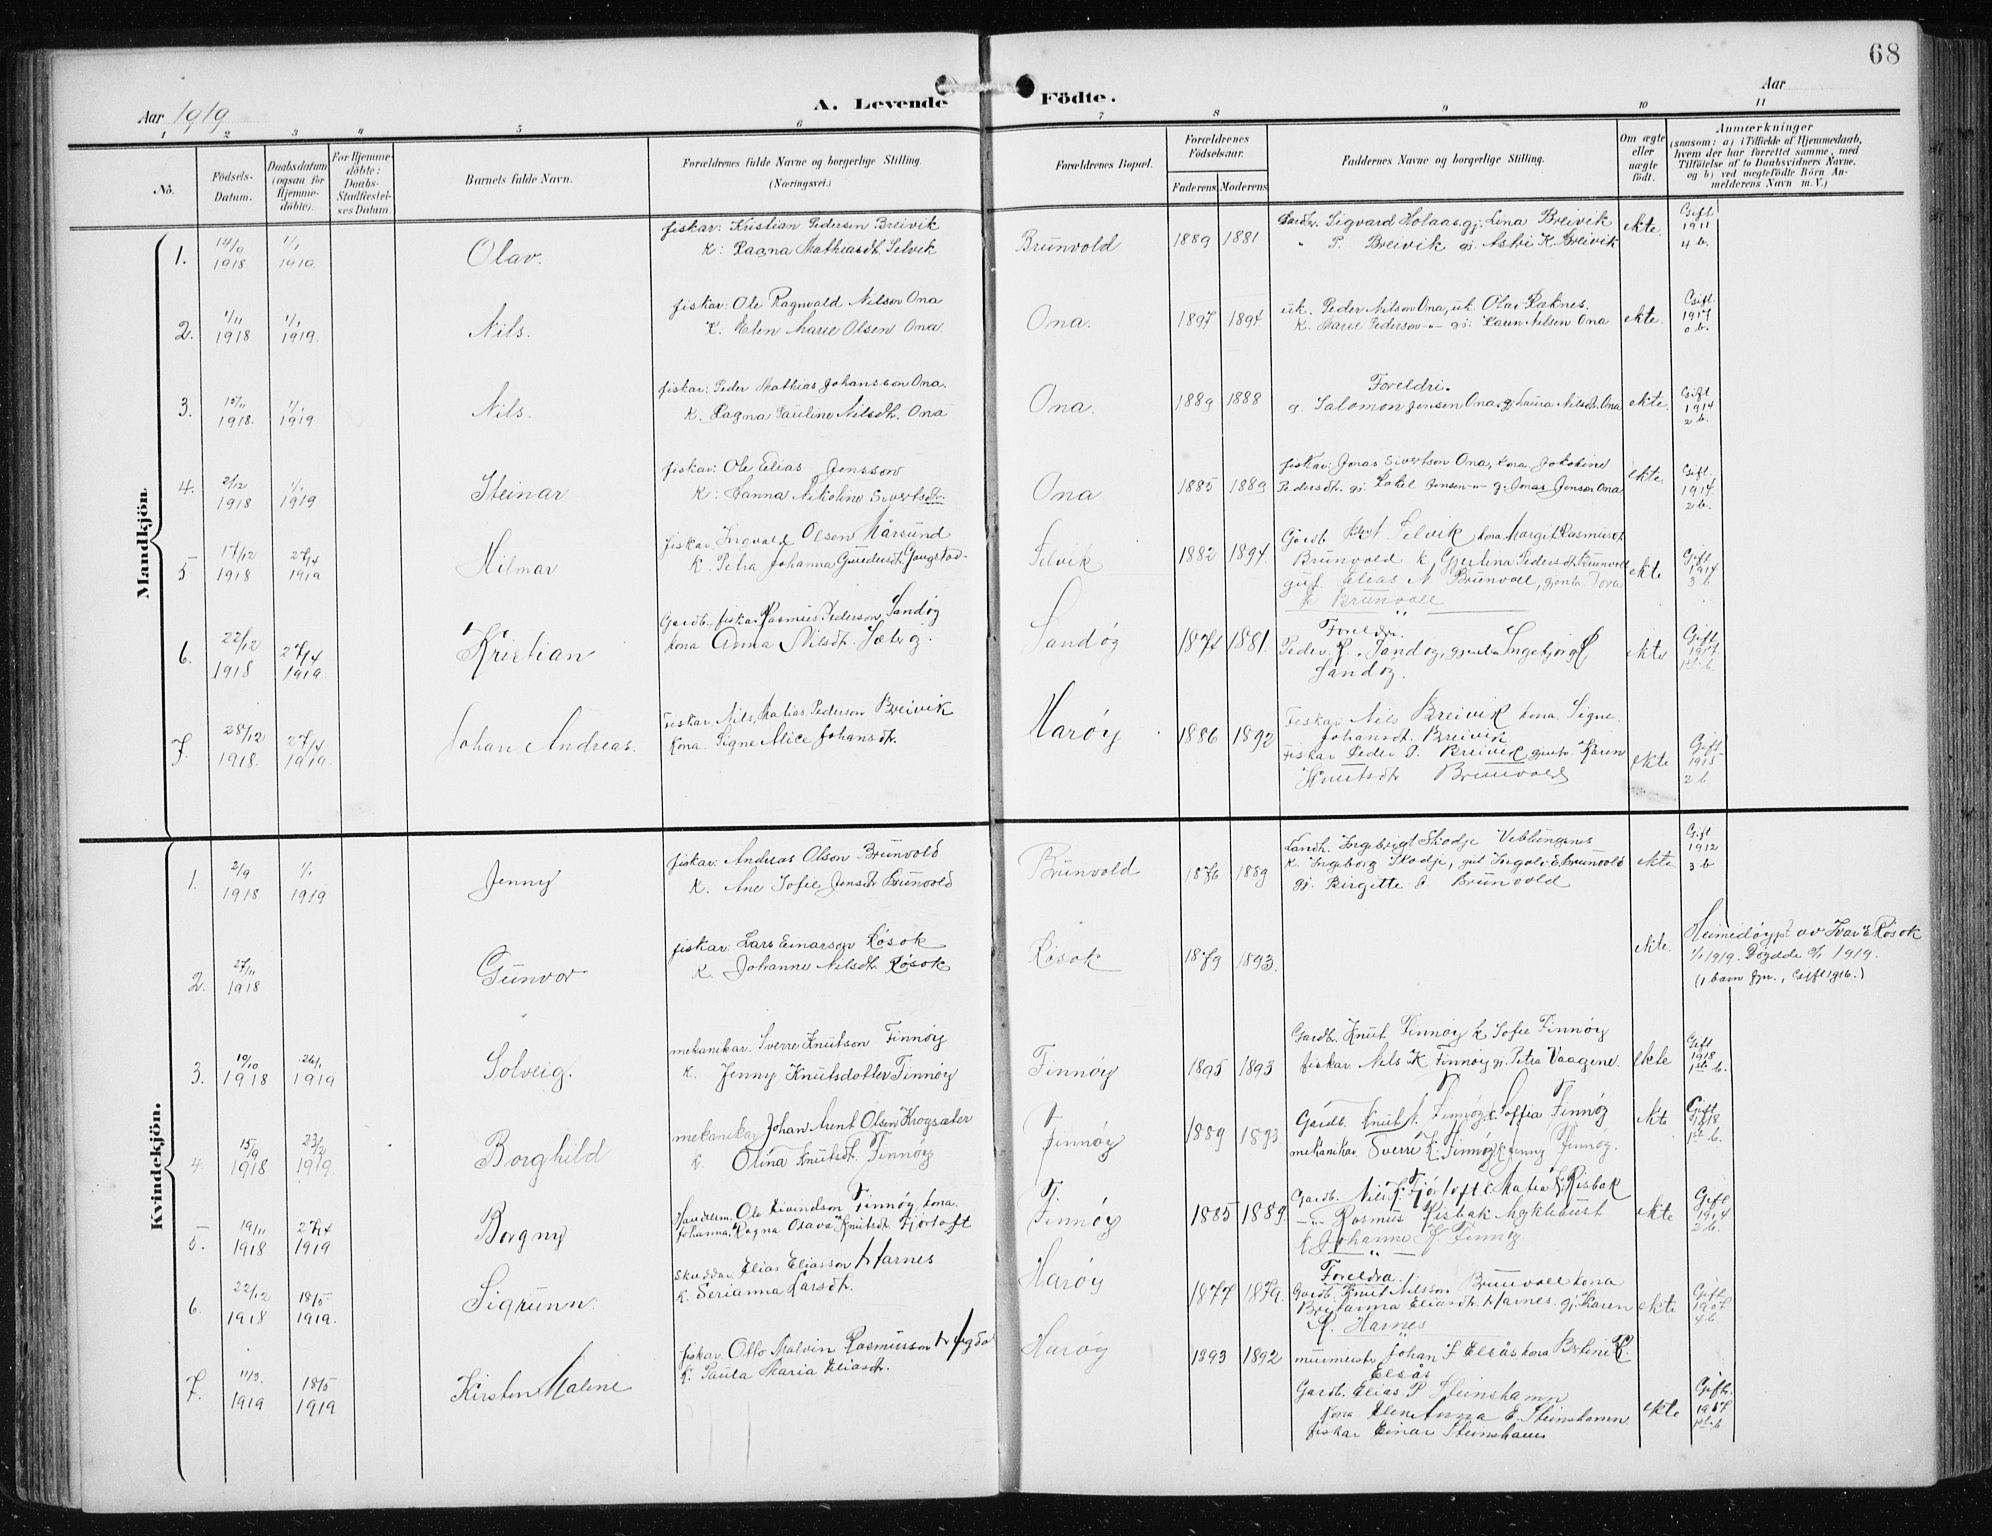 68
Aar 1919
A. Levende Födte.
Aar
1 2 3 4 5 6 7 8 9 10 11
No.
Födsels-Datum.
Daabsdatum (ogsaa for Hjemme-döbte).
For Hjemme-döbte: Daabs-Stadfæstel-ses Datum.
Barnets fulde Navn.
Forældrenes fulde Navne og borgerlige Stilling.
(Næringsvei.)
Forældrenes Bopæl.
Forældrenes Födselsaar.
Faderens Moderens
Faddernes Navne og borgerlige Stilling.
Om ægte eller uægte födt.
Anmærkninger
(saasom: a) i Tilfælde af Hjemmedaab,
hvem der har forrettet samme, med
Tilföielse af to Daabsvidners Navne,
og b) ved uægtefödte Börn An-
melderens Navn m. V.)
Mandkjön.
1. 14/9 1918 1/1 1919 Olav.
fiskar: Kristian Pedersen Breivik
K: Ragna Mathiasdt. Selvik
Brunvold 1889 1881
Sigvard Holaas gj. Lina Breivik
" P. Breivik gj. K. Breivik
ekte.
Gift 1911 4 b.
2. 1/11 1918 1/1 1919. Nils.
fiskar: Ole Ragnvald Nilson Ona
K. Elen Marie Olsen Ona.
Ona. 1897 1894
uk. Peder Nilson Ona, uk. Olav Ræknes.
K. Marie Pederson -"- gj. Karen Nilsen Ona
ekte.
Gift. 1917 0 b.
3. 15/11 1918. 1/1 1919 Nils.
fiskar: Peder Mathias Johansson Ona.
K. Ragna Pauline Nilsdt. Ona
Ona. 1889 1888
Foreldri.
g. Salomon Jensen Ona, gj. Laura Nilsdt. Ona
ekte.
Gift 1914 2 b.
4. 2/12 1918 1/1 1919 Steinar
fiskar: Ole Elias Jensson
K: Hanna Nikoline Sivertsdt.
Ona 1885 1889
fiskar: Jonas Sivertson Ona, kona Jakobine
Pedersdt. gj. Rakel Jenson -"- g. Jonas Jenson Ona
ekte.
Gift. 1914. 2 b.
5 17/12 1918 27/4 1919 Hilmar
fiskar. Ingvald Olsen Mårsund
K. Petra Johanna Gaugstad-
Selvik 1882 1894.
Gardb. Selvik kona Margit Rasmusdt
Brunvold k. Gjertina Pedersdt. Brunvoll
gut. Elias N Brunvoll, gjenta Tora
K Brunvoll
ekte
Gift 1914 3 b
6. 22/12 1918 27/4 1919. Kristian
Gardb., fiskar Rasmus Pederson Sandøy
kona Anna Nilsdt.
Sandøy 1874 1881
Foreldri.
Peder R. Sandøy, gjenta Ingebjørg
Sandøy.
ekte
Gift 1917 1ste b.
7. 28/12 1918. 27/4 1919. Johan Andreas.
Fiskar. Nils Matias Pederson Breivik
Kona. Signe Alice Johansdt.
Harøy 1886 1892
Fiskar Nils Breivik kona Signe
Johansdt. Breivik
Fiskar Peder P. Breivik, gjenta Karen
Knutsdt Brunvold
ekte
Gift 1915 2 b
Kvindekjön.
1. 2/9 1918 1/1 1919 Jenny
fiskar: Andreas Olson Brunvold
K. Ane Sofie Jensdt Brunvold
Brunvold 1876 1889
Landh. Ingebrigt Skodje Veblungsnes
K. Ingeborg Skodje, gut Ingolv E Brunvold
gj. Birgitte Brunvold
ekte
Gift 1912 3 b
2. 27/11 1918 Gunvor
fiskar: Lars Einarson Røsok
K. Johanne Nilsdt. Røsok
Røsok 1879 1893.
ekte.
Heimedøypt av Ivar E Røsok
1/1 1919. 1919.
(1 barn fyr., Gift 1916.)
3. 19/10 1918 26/1 1919 Solveig.
mekanikar. Sverre Knutson Finnøy
K. Jenny Knutsdotter Finnøy
Finnøy 1895 1893
Gardb. Knut Finnøy k Sofie Finnøy
fiskar Nils K Finnøy gj. Petra Vaagene.
ekte
Gift 1918 1ste b.
4. 15/9 1918 23/2 1919. Borghild
mekanikar Johan Arnt Olsen Krogsæter
K. Olina Knutsdt. Finnøy
Finnøy 1889 1893
Gardb. Knut Finnøy k. Soffia Finnøy
mekanikar. Sverre K. Finnøy k Jenny Finnøy.
ekte
Gift 1918 1st b.
5. 19/11 1918 27/4 1919 Borgny
Handelsm. Ole Eivindson Finnøy, kona.
Johanna Ragna Olava Knutsdt Fjørtoft
Finnøy 1885 1889.
Gardb. Nils K. Fjørtoft k Matea Risbak
-"- Rasmus Risbak Myklebust
K Johanne K. Finnøy.
ekte
Gift 1914 2 b.
6. 22/12 1918 18/5 1919. Sigrunn.
Skreddar Elias Eliasson Harnes
K. Serianna Larsdt.
Harøy 1877 1879.
Foreldra.
Gardb. Knut Nilsson Brunvoll kona
Eliasdt. Harnes. gj. Karen
R. Harnes
ekte
Gift 1907 4 b.
7. 11/3. 1919 18/5 1919 Kirsten Maline
fiskar. Otto Malvin Rasmusson
K. Paula Maria Eliasdt.
Harøy 1893 1892
murmeister Johan J Elsås kona Berline K.
Elsås
Gardb. Elias P Steinshamn
Kona Eline Anna E. Steinshamn
fiskar Einar Steinshamn
ekte
Gift. 1ste b